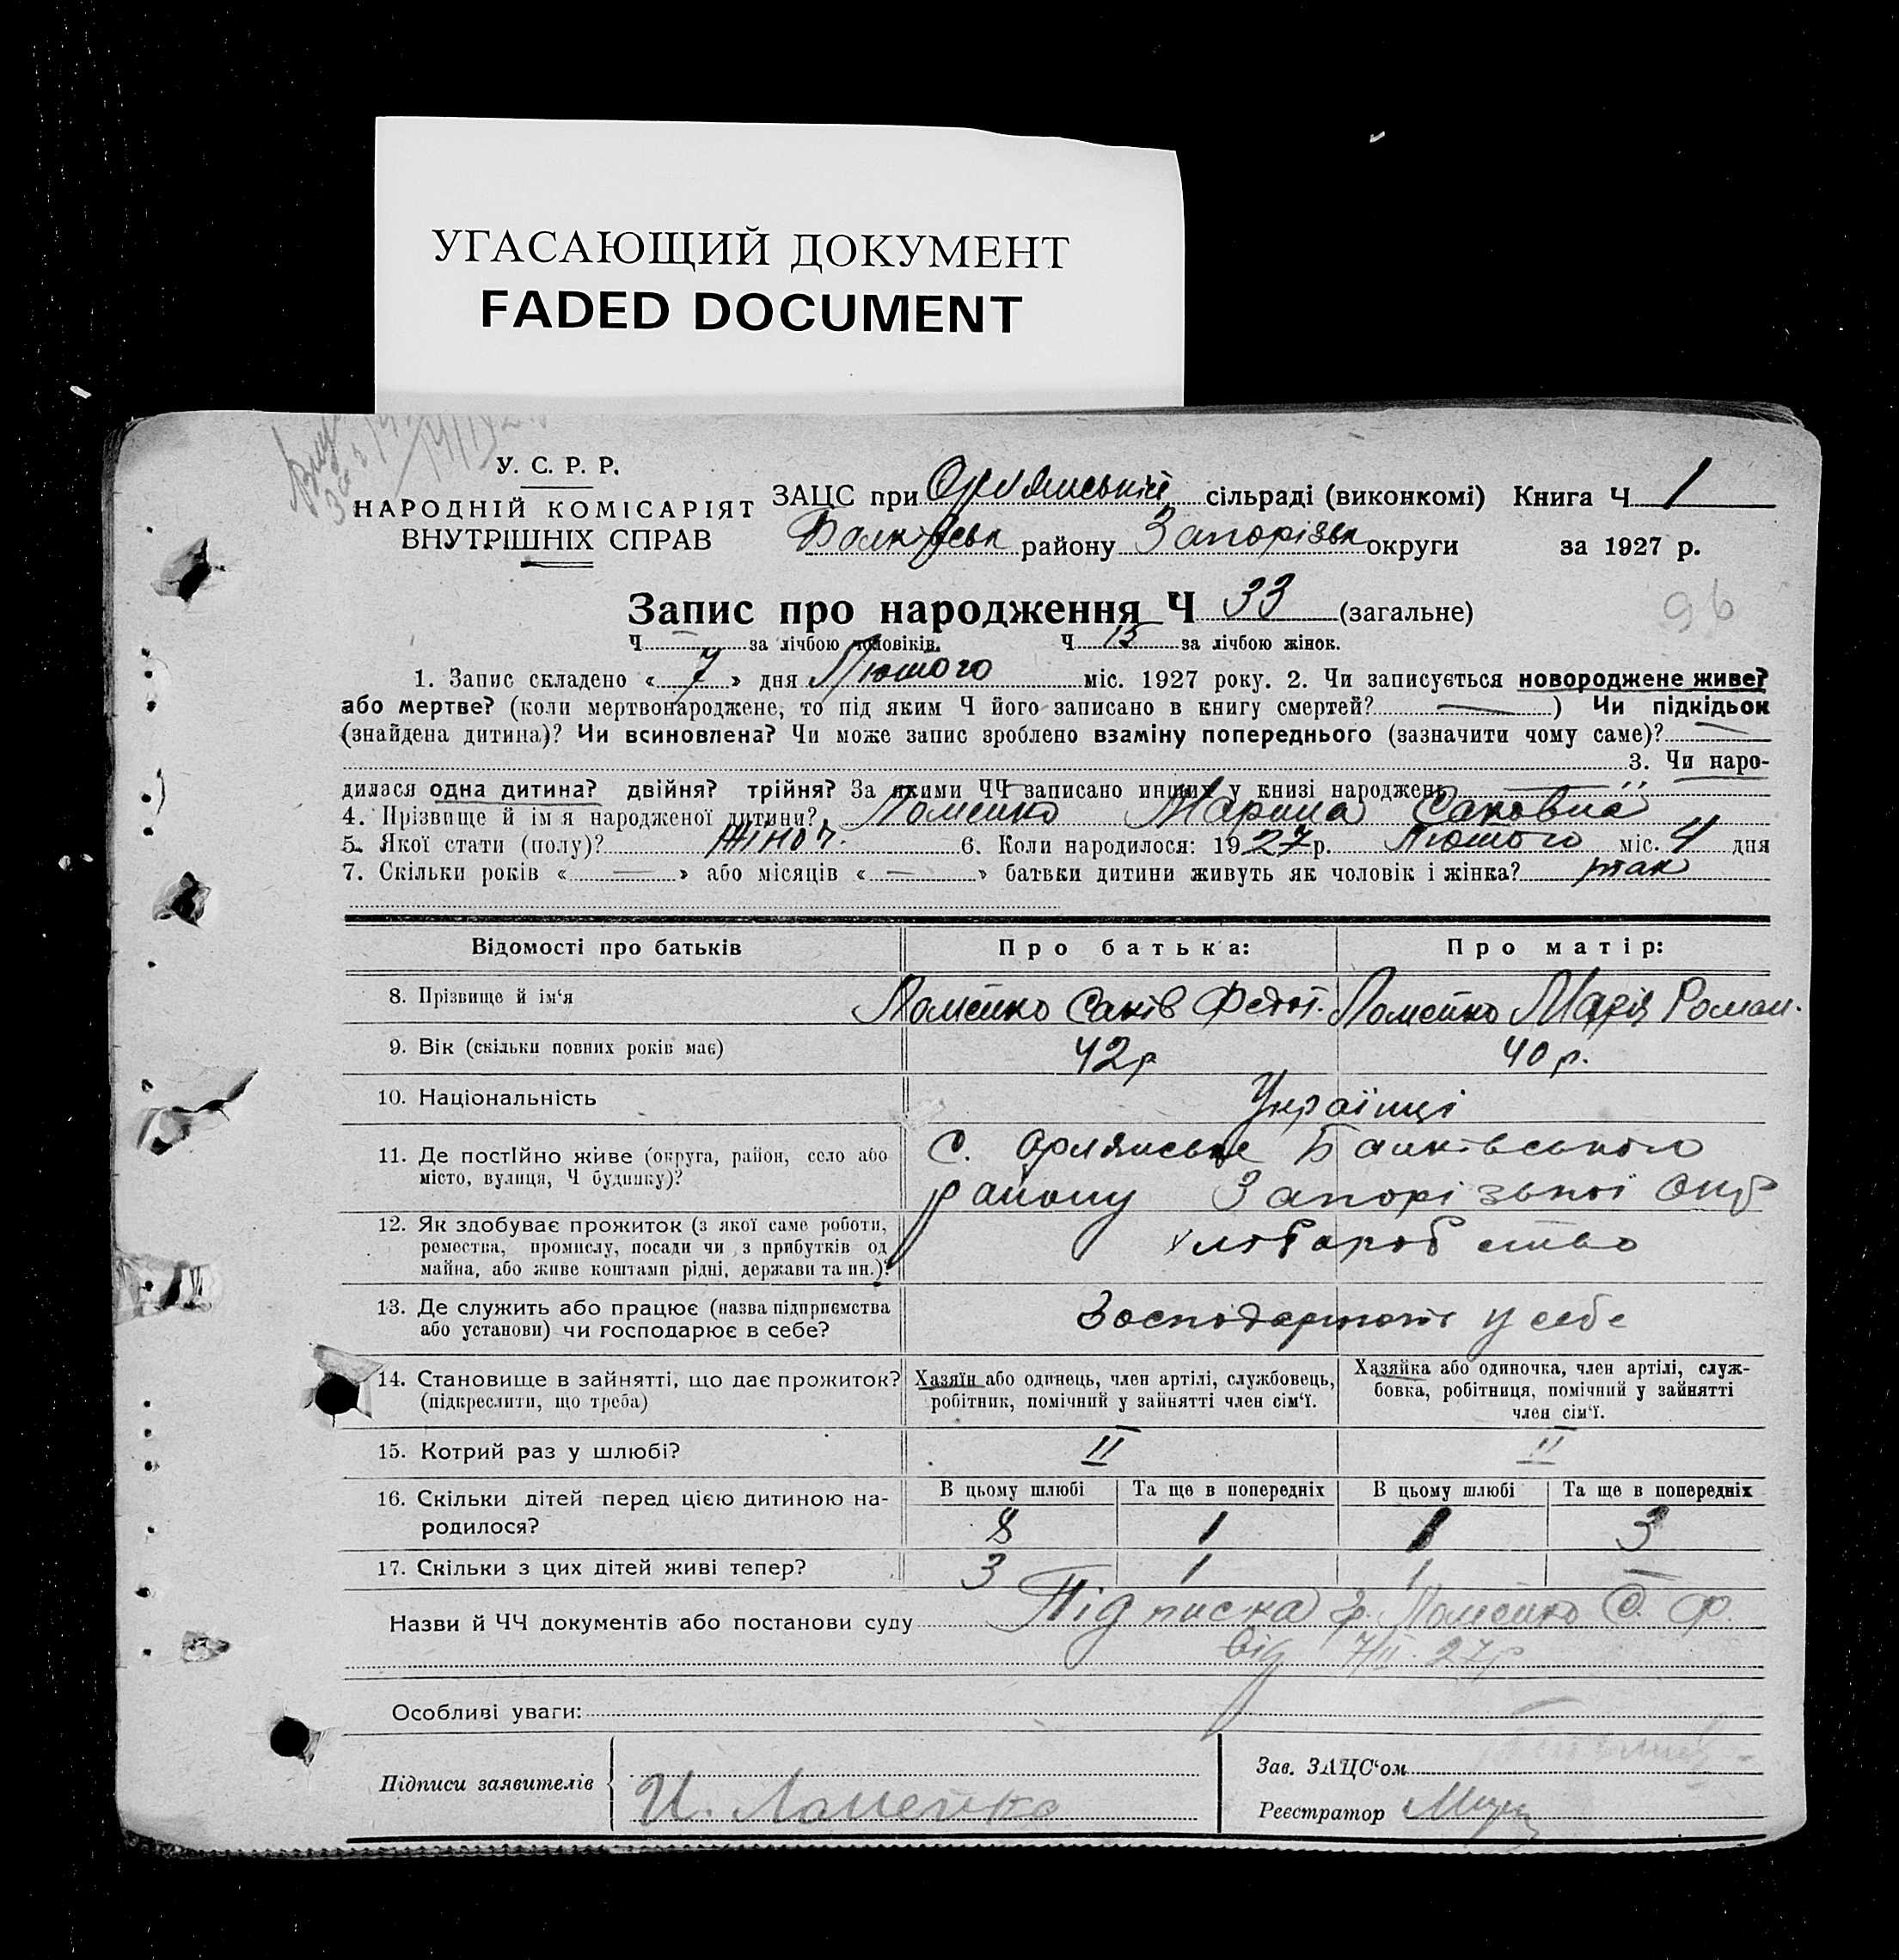 УГАСАЮЩИЙ ДОКУМЕНТ
FADED DOCUMENT
У. С. Р. Р.
НАРОДНІЙ КОМІСАРІЯТ
ВНУТРІШНІХ СПРАВ
ЗАЦС при Орлянській сільраді (виконкомі) Книга Ч 1
району Запорізьк округи за 1927 р.
Запис про народження Ч 33 (загальне)
96
Ч — за лічбою чоловіків. Ч 15 за лічбою жінок.
1. Запис складено « 7 » дня Лютого міс. 1927 року. 2. Чи записується новороджене живе?
або мертве? (коли мертвонароджене, то під яким Ч його записано в книгу смертей? — ) Чи підкідьок
(знайдена дитина)? Чи всиновлена? Чи може запис зроблено взаміну попереднього (зазначити чому саме)? —
3. Чи наро-
дилася одна дитина? двійня? трійня? За якими ЧЧ записано инших у книзі народжень
4. Прізвище й ім'я народженої дитини? Ломейко Марина Саковна
5. Якої стати (полу)? жіноч. 6. Коли народилося: 1927 р. Лютого міс. 4 дня
7. Скільки років « — » або місяців « — » батьки дитини живуть як чоловік і жінка? так
Відомості про батьків Про батька: Про матір:
8. Прізвище й ім'я Ломейко Саків Федот. Ломейко Марія Роман.
9. Вік (скільки повних років має) 42р 40 р.
10. Національність Українці
11. Де постійно живе (округа, район, село або
місто, вулиця, Ч будинку)?
с. Орлянське Банківського
району Запорізької Окр
12. Як здобуває прожиток (з якої саме роботи,
ремества, промислу, посади чи з прибутків од
майна, або живе коштами рідні, держави та ин.)?
хліборобство
13. Де служить або працює (назва підприємства
або установи) чи господарює в себе?
у себе
14. Становище в зайнятті, що дає прожиток?
(підкреслити, що треба)
Хазяїн або одинець, член артілі, службовець,
робітник, помічний у зайнятті член сім'ї.
Хазяйка або одиночка, член артілі, служ-
бовка, робітниця, помічний у зайнятті
член сім'ї.
15. Котрий раз у шлюбі? II II
16. Скільки дітей перед цією дитиною на-
родилося?
В цьому шлюбі Та ще в попередніх В цьому шлюбі Та ще в попередніх
8 1 3
17. Скільки з цих дітей живі тепер? 3 1 1 —
Назви й ЧЧ документів або постанови суду Підписка гр. Ломейко С. Ф.
від 7/II 27р
Особливі уваги:
Підписи заявителів
И. Ломейко
Зав. ЗАЦС'ом
Реєстратор